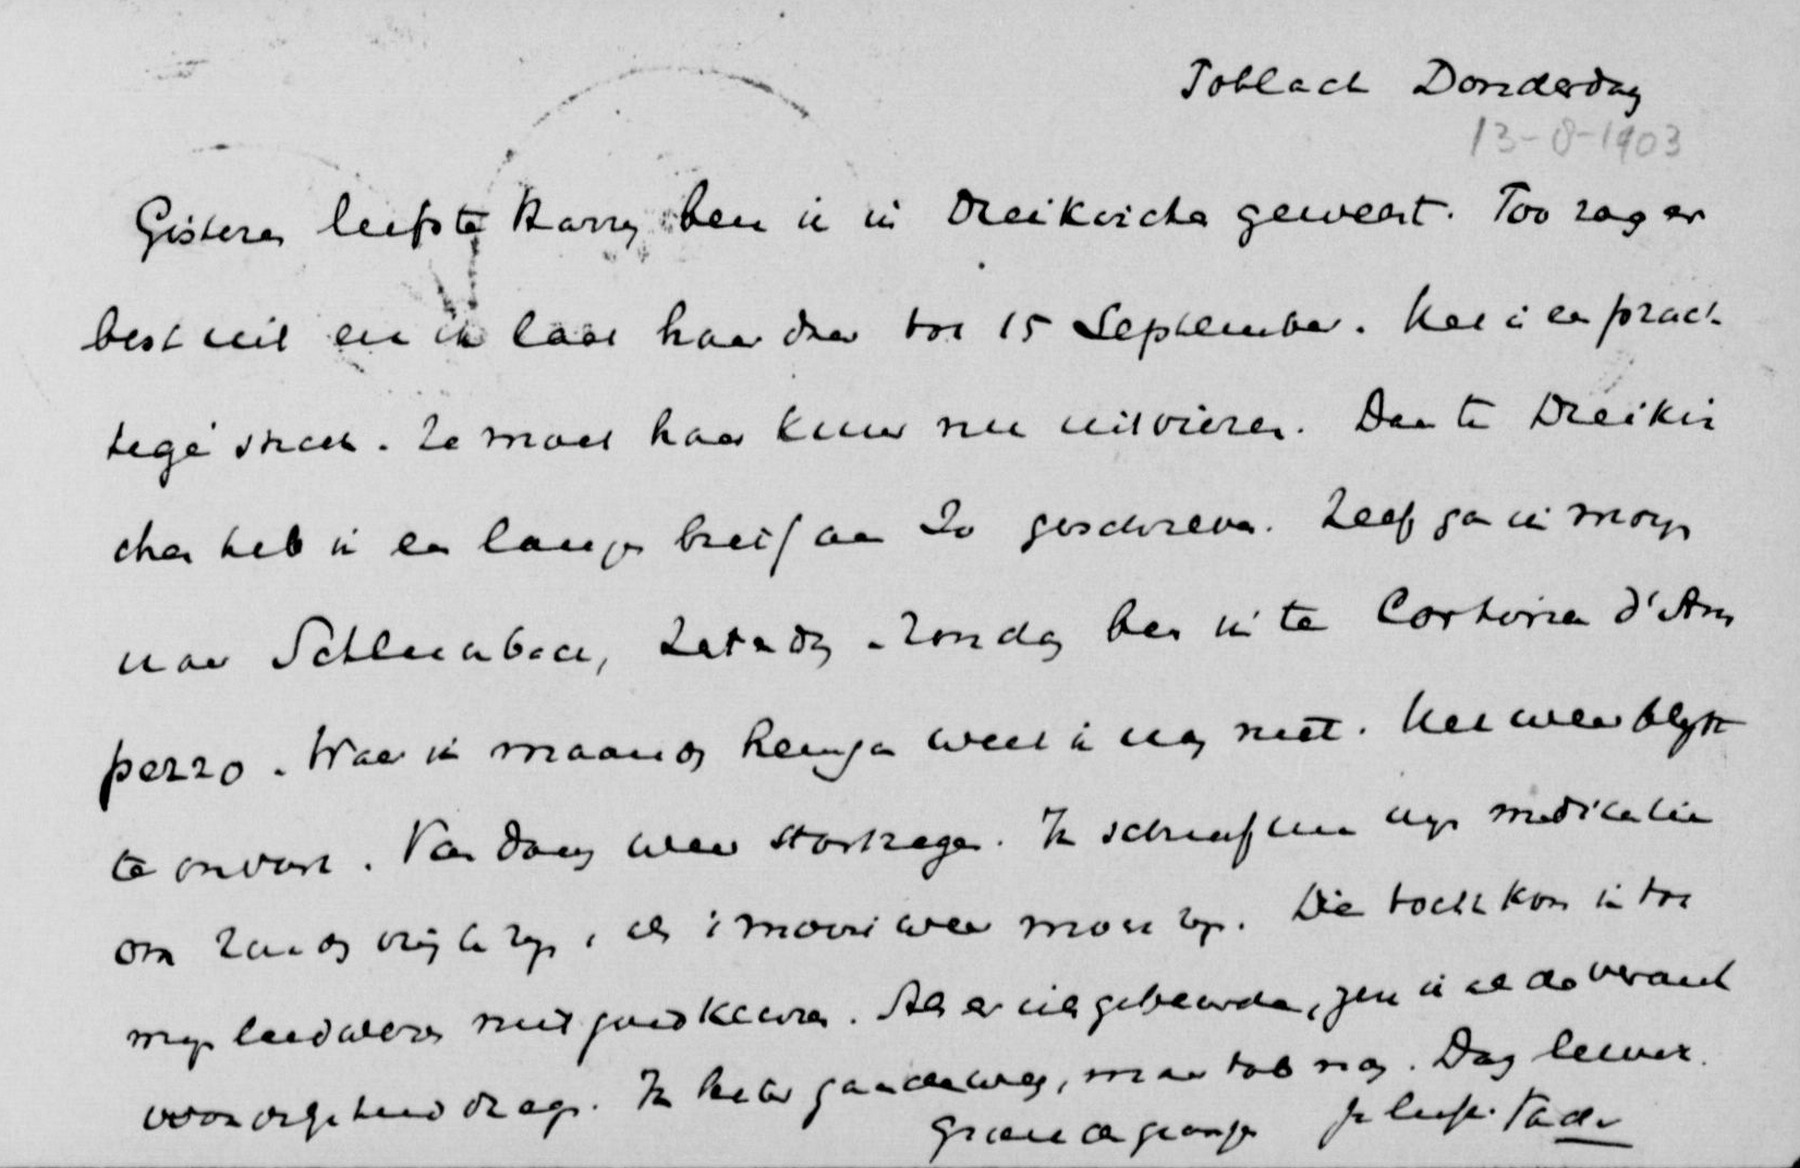 Toblach Donderdag
13-8-1903
Gisteren liefste Harry ben ik in Dreikirchen geweest. Too zag er
best uit en ik laat haar daar tot 15 September. Het is een prach
tege streek. Ze moet haar kuur nu uitvieren. Van te Dreikir
chen heb ik een lange brief aan Zo geschreven. Zelf ga ik morgen
naar Schluderbach, Zaterdag - Zondag ben ik te Cortina d'Am
pezzo. Waar ik maandag heenga weet ik nog niet. Het weer blijft
te onvast. Van daag weer stortregen. Ik schreef uw
om Zondag vrij te zijn, als 't mooi weer mocht zijn. Die tocht kon ik tot
mijn leedwezen niet goedkeuren. Als er iets gebeurde, zou ik al de verant
woordelijkheid dragen. Ik gaandeweg, maar tob nog. Dag lieverd.
Groet de Je liefh. Vader